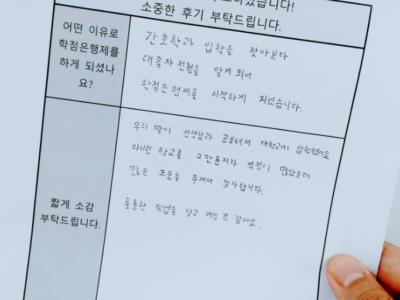 하셨습니다!
소중한 후기 부탁드립니다.
어떤 이유로
학점은행제를
하게 되셨나
요?
간호학과 입학을 찾아보다
대졸자전형을 알게 되어
학점은행제를 시작하게 되었습니다.
짧게 소감
부탁드립니다.
우리 딸이 선생님과 공부해서 대학교에 입학했어요
다니던 학교를 그만둔지라 걱정이 많았는데
많은 도움을 주셔서 감사합니다.
훌륭한 직업을 갖고 계신 것 같아요.